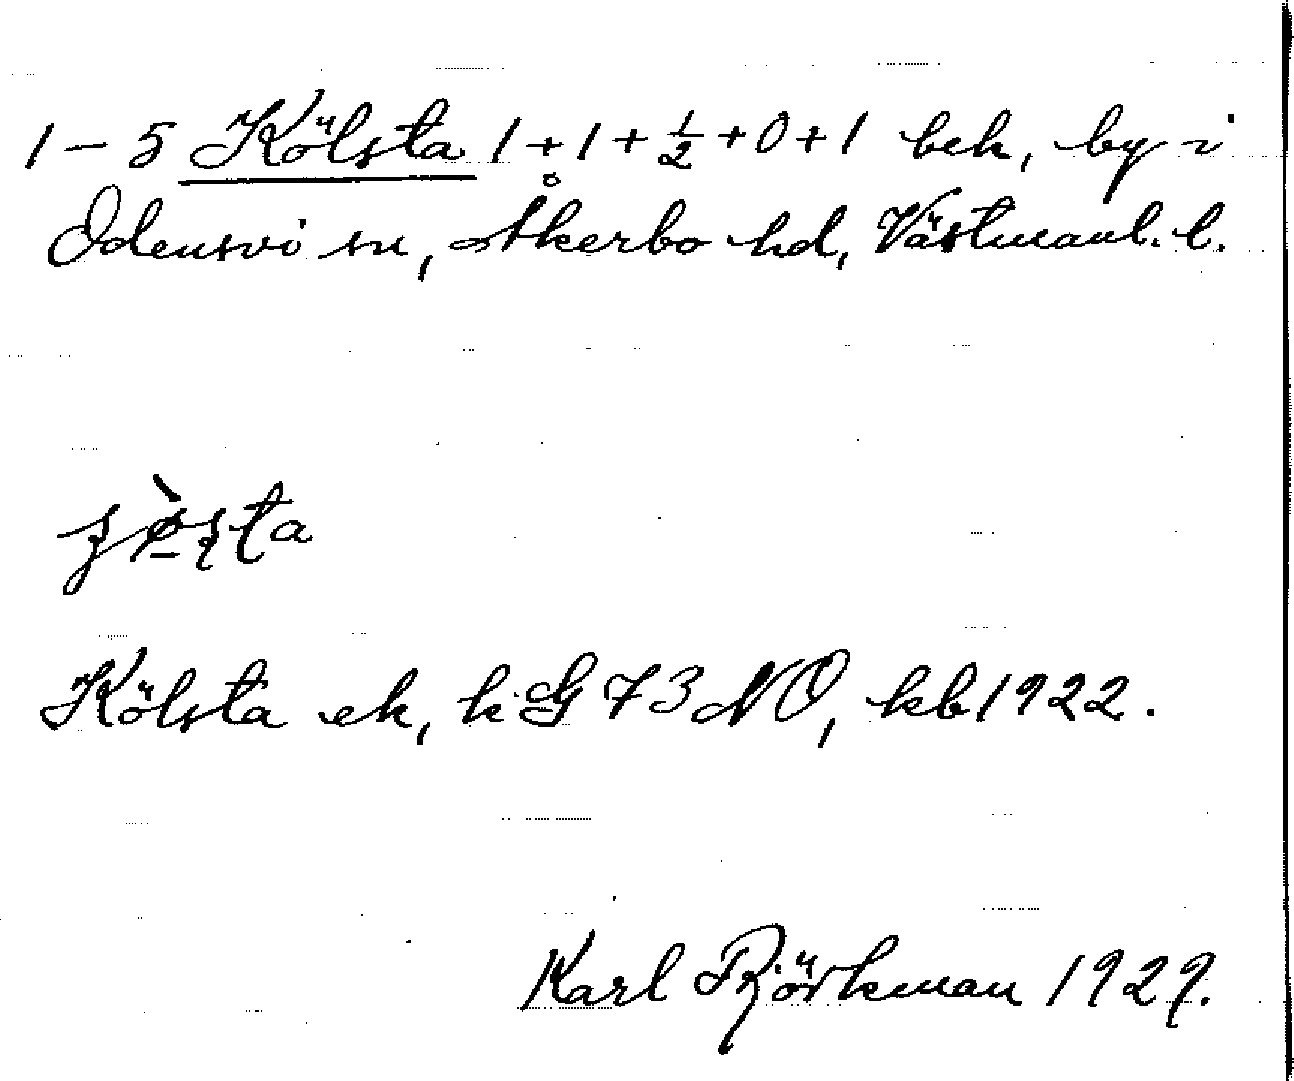 1 – 5 Kölsta 1 + 1 + ½ + 0 + 1 beh, by i
Odensvi sn, Åkerbo hd, Västmanl. l.
Kölsta ek, k G 73 NO, kb 1922.
Karl Björkman 1929.